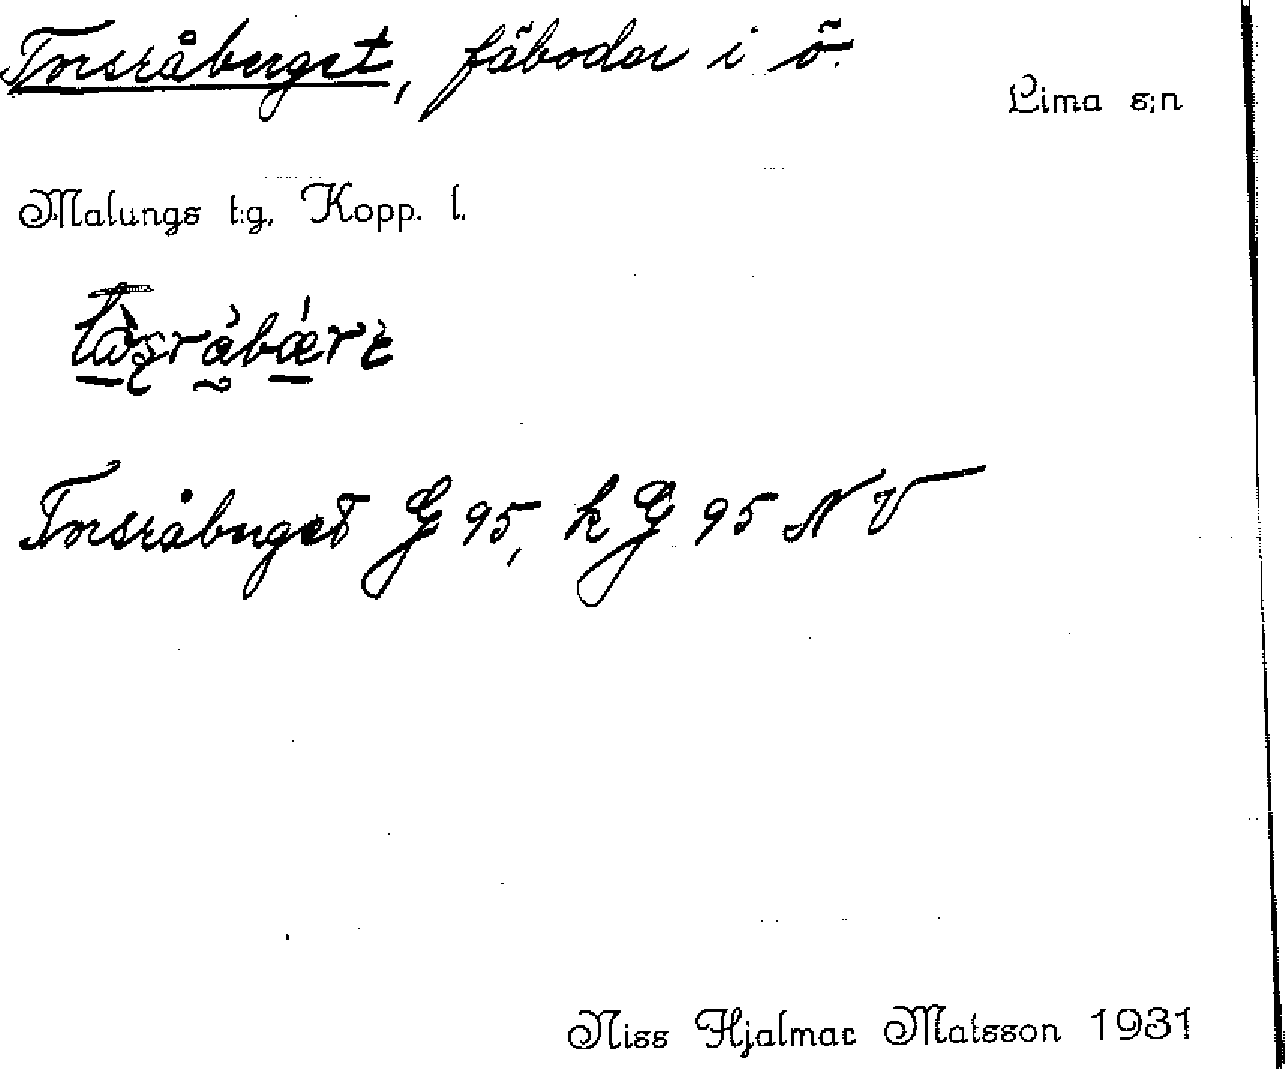 Torsråberget, fäbodar i ö.
Lima s:n
Malungs t:g. Kopp. l.
Torsråberget G 95, k G 95 NV
Niss Hjalmar Matsson 1931